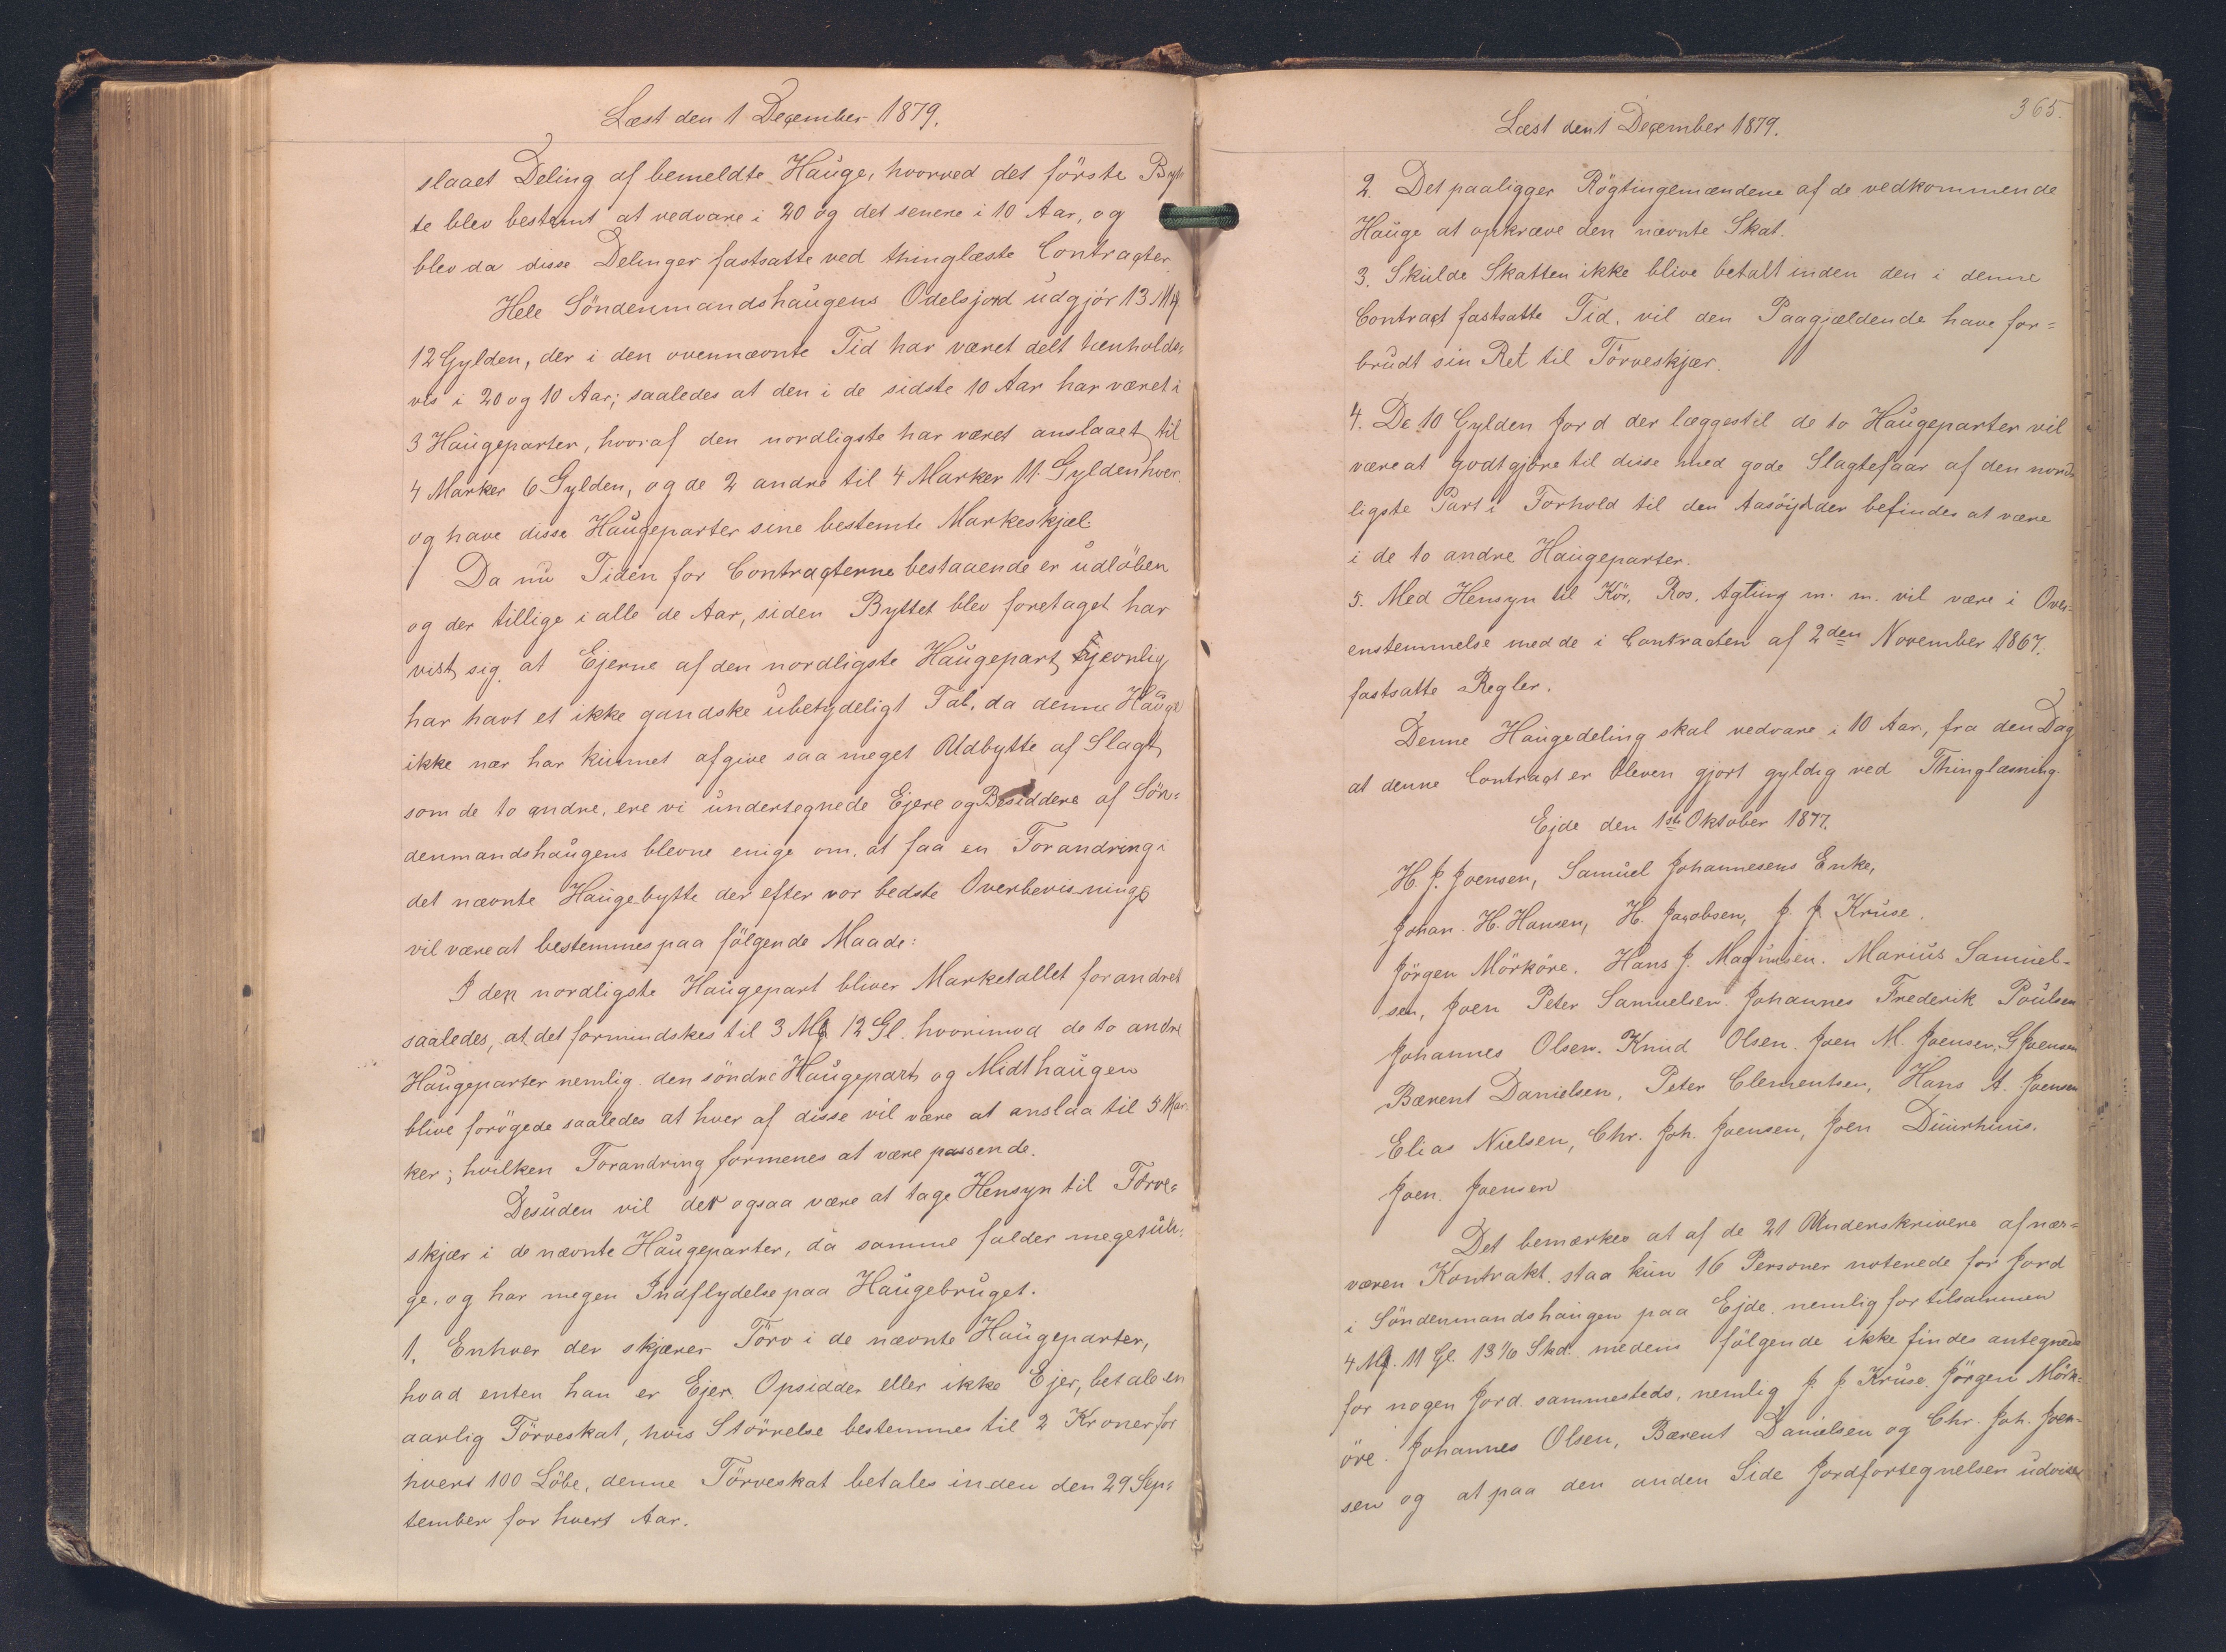 Læst den 1 December 1879.
slaaet Deling af bemeldte Hauge, hvorved det förste Byt
te blev bestemt at vedvare i 20 og det senere i 10 Aar, og
blev da disse Delinger fastsatte ved thinglæste Contragter
Hele Söndenmandshaugens Odelsjord udgjör 13 Mk
12 Gylden, der i den ovennævnte Tid har været delt henholds-
vis i 20 og 10 Aar; saaledes at den i de sidste 10 Aar har været i
3 Haugeparter, hvoraf den nordligste har været anslaaet til
4 Marker 6 Gylden, og de 2 andre til 4 Marker 11 Gylden hver.
og have disse Haugeparter sine bestemte Markeskjæl.
Da nu Tiden for Contragterne bestaaende er udlöben
og der tillige i alle de Aar, siden Byttet blev foretaget har
vist sig at Ejerne af den nordligste Haugepart jevnlig
har havt et ikke gandske ubetydeligt Tab, da denne Hauge
ikke nær har kunnet afgive saa meget Udbytte af Slagt
som de to andre, ere vi undertegnede Ejere og Besiddere af Sön-
denmandshaugens blevne enige om, at faa en Forandring i
det nævnte Haugebytte der efter vor bedste Overbevisning
vil være at bestemmes paa fölgende Maade:
I den nordligste Haugepart bliver Marketallet forandret
saaledes, at det formindskes til 3 Mk 12 Gl. hvorimod de to andre
Haugeparter nemlig den söndre Haugepart og Midthaugen
blive forögede saaledes at hver af disse vil være at anslaa til 5 Mar-
ker; hvilken Forandring formenes at være passende.
Desuden vil der ogsaa være at tage Hensyn til Törve-
skjær i de nævnte Haugeparter, da samme falder meget ulige
ge, og har megen Indflydelse paa Haugebruget.
1. Enhver der skjærer Törv i de nævnte Haugeparter,
hvad enten han er Ejer, Opsidder eller ikke Ejer, betale en
aarlig Törveskat, hvis Störrelse bestemmes til 2 Kroner for
hvert 100 Löbe, denne Törveskat betales inden den 29 Sep-
tember for hvert Aar.
365.
Læst den 1 December 1879.
2. Det paaligger Rögtingemændene af de vedkommende
Hauge at opkræve den nævnte Skat.
3. Skulde Skatten ikke blive betalt inden den i denne
Contragt fastsatte Tid, vil den Paagjældende have for-
brudt sin Ret til Törveskjær.
4. De 10 Gylden Jord der læggestil de to Haugeparter vil
være at godtgjöre til disse med gode Slagtefaar af den nord-
ligste Part i Forhold til den Aasöjd der befindes at være
i de to andre Haugeparter.
5. Med Hensyn til Kör, Ros, Agting m. m. vil være i Over-
enstemmelse med de i Contracten af 2den November 1867.
fastsatte Regler.
Denne Haugedeling skal vedvare i 10 Aar, fra den Dag
at denne Contragt er bleven gjort gyldig ved Thinglæsning.
Ejde den 1ste Oktober 1877.
H. J. Joensen, Samuel Johannesens Enke,
Johan. H. Hansen, H. Jacobsen, J. J. Kruse.
Jörgen Mörköre. Hans J. Magnusen. Marius Samuel-
sen, Joen Peter Samuelsen. Johannes Frederik Poulsen
Johannes Olsen. Knud Olsen. Joen M. Joensen, G Joensen
Bærent Danielsen, Peter Clementsen, Hans A. Joensen
Elias Nielsen, Chr. Joh. Joensen, Joen Duurhuus.
Joen. Joensen
Det bemærkes at af de 21 Underskrivere af nær-
væren Kontrakt. staa kun 16 Personer noterede for Jord
i Söndenmandshaugen paa Ejde, nemlig for tilsammen
4 Mk. 11 Gl. 13 1/6 Skd. medens fölgende ikke findes antegnede
for nogen Jord sammesteds, nemlig J. J. Kruse, Jörgen Mörk-
öre. Johannes Olsen, Bærent Danielsen og Chr. Joh. Joen-
sen og at paa den anden Side Jordfortegnelsen udviser